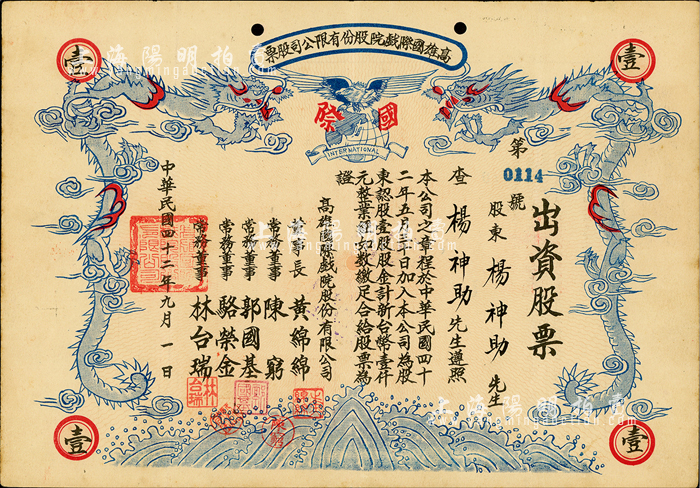 高雄國際戲院股份有限公司股票
壹
壹
國際
INTERNATIONAL
出資股票
第
0114
號
股東 楊神助 先生
查 楊神助 先生遵照
本公司之章程於中華民國四十
二年五月十日加入本公司為股
東認股壹股股金計新台幣壹仟
元整業已如數繳足合給股票為
證
高雄國際戲院股份有限公司
董事長 黃綿綿
常務董事 陳窮
常務董事 郭國基
常務董事 駱榮金
常務董事 林台瑞
中華民國四十二年九月一日
壹
壹
上海陽明拍賣